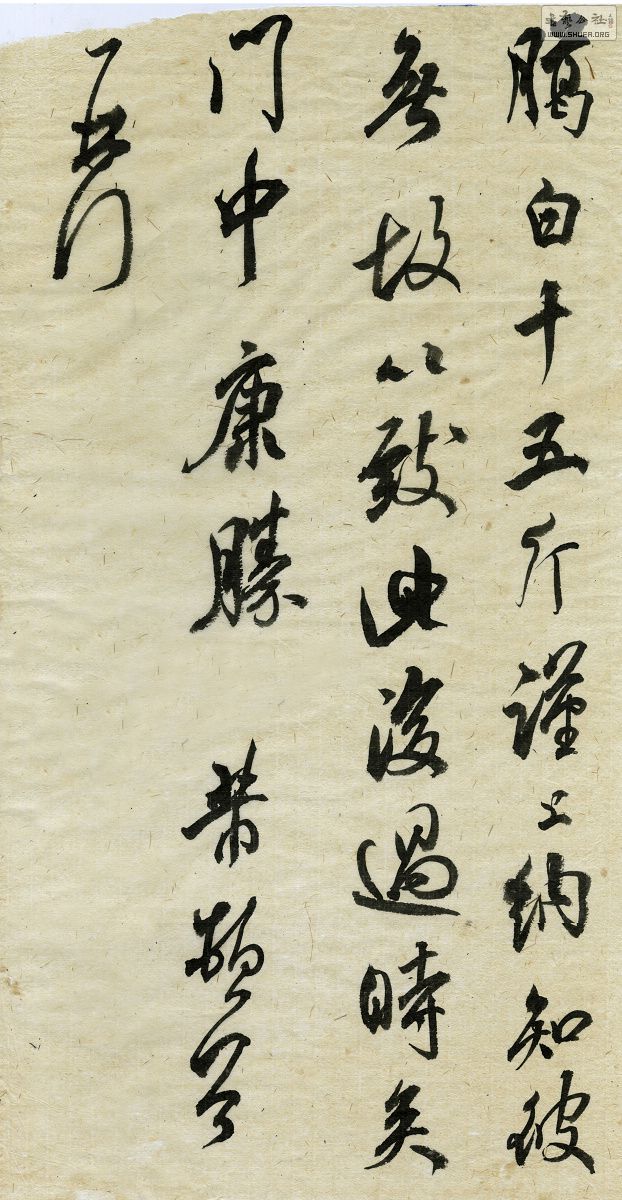 白十五斤謹上納知彼
無故以致此後過時矣
門中康勝 芾頓首
書藝公社
WWW.SHUFA.ORG